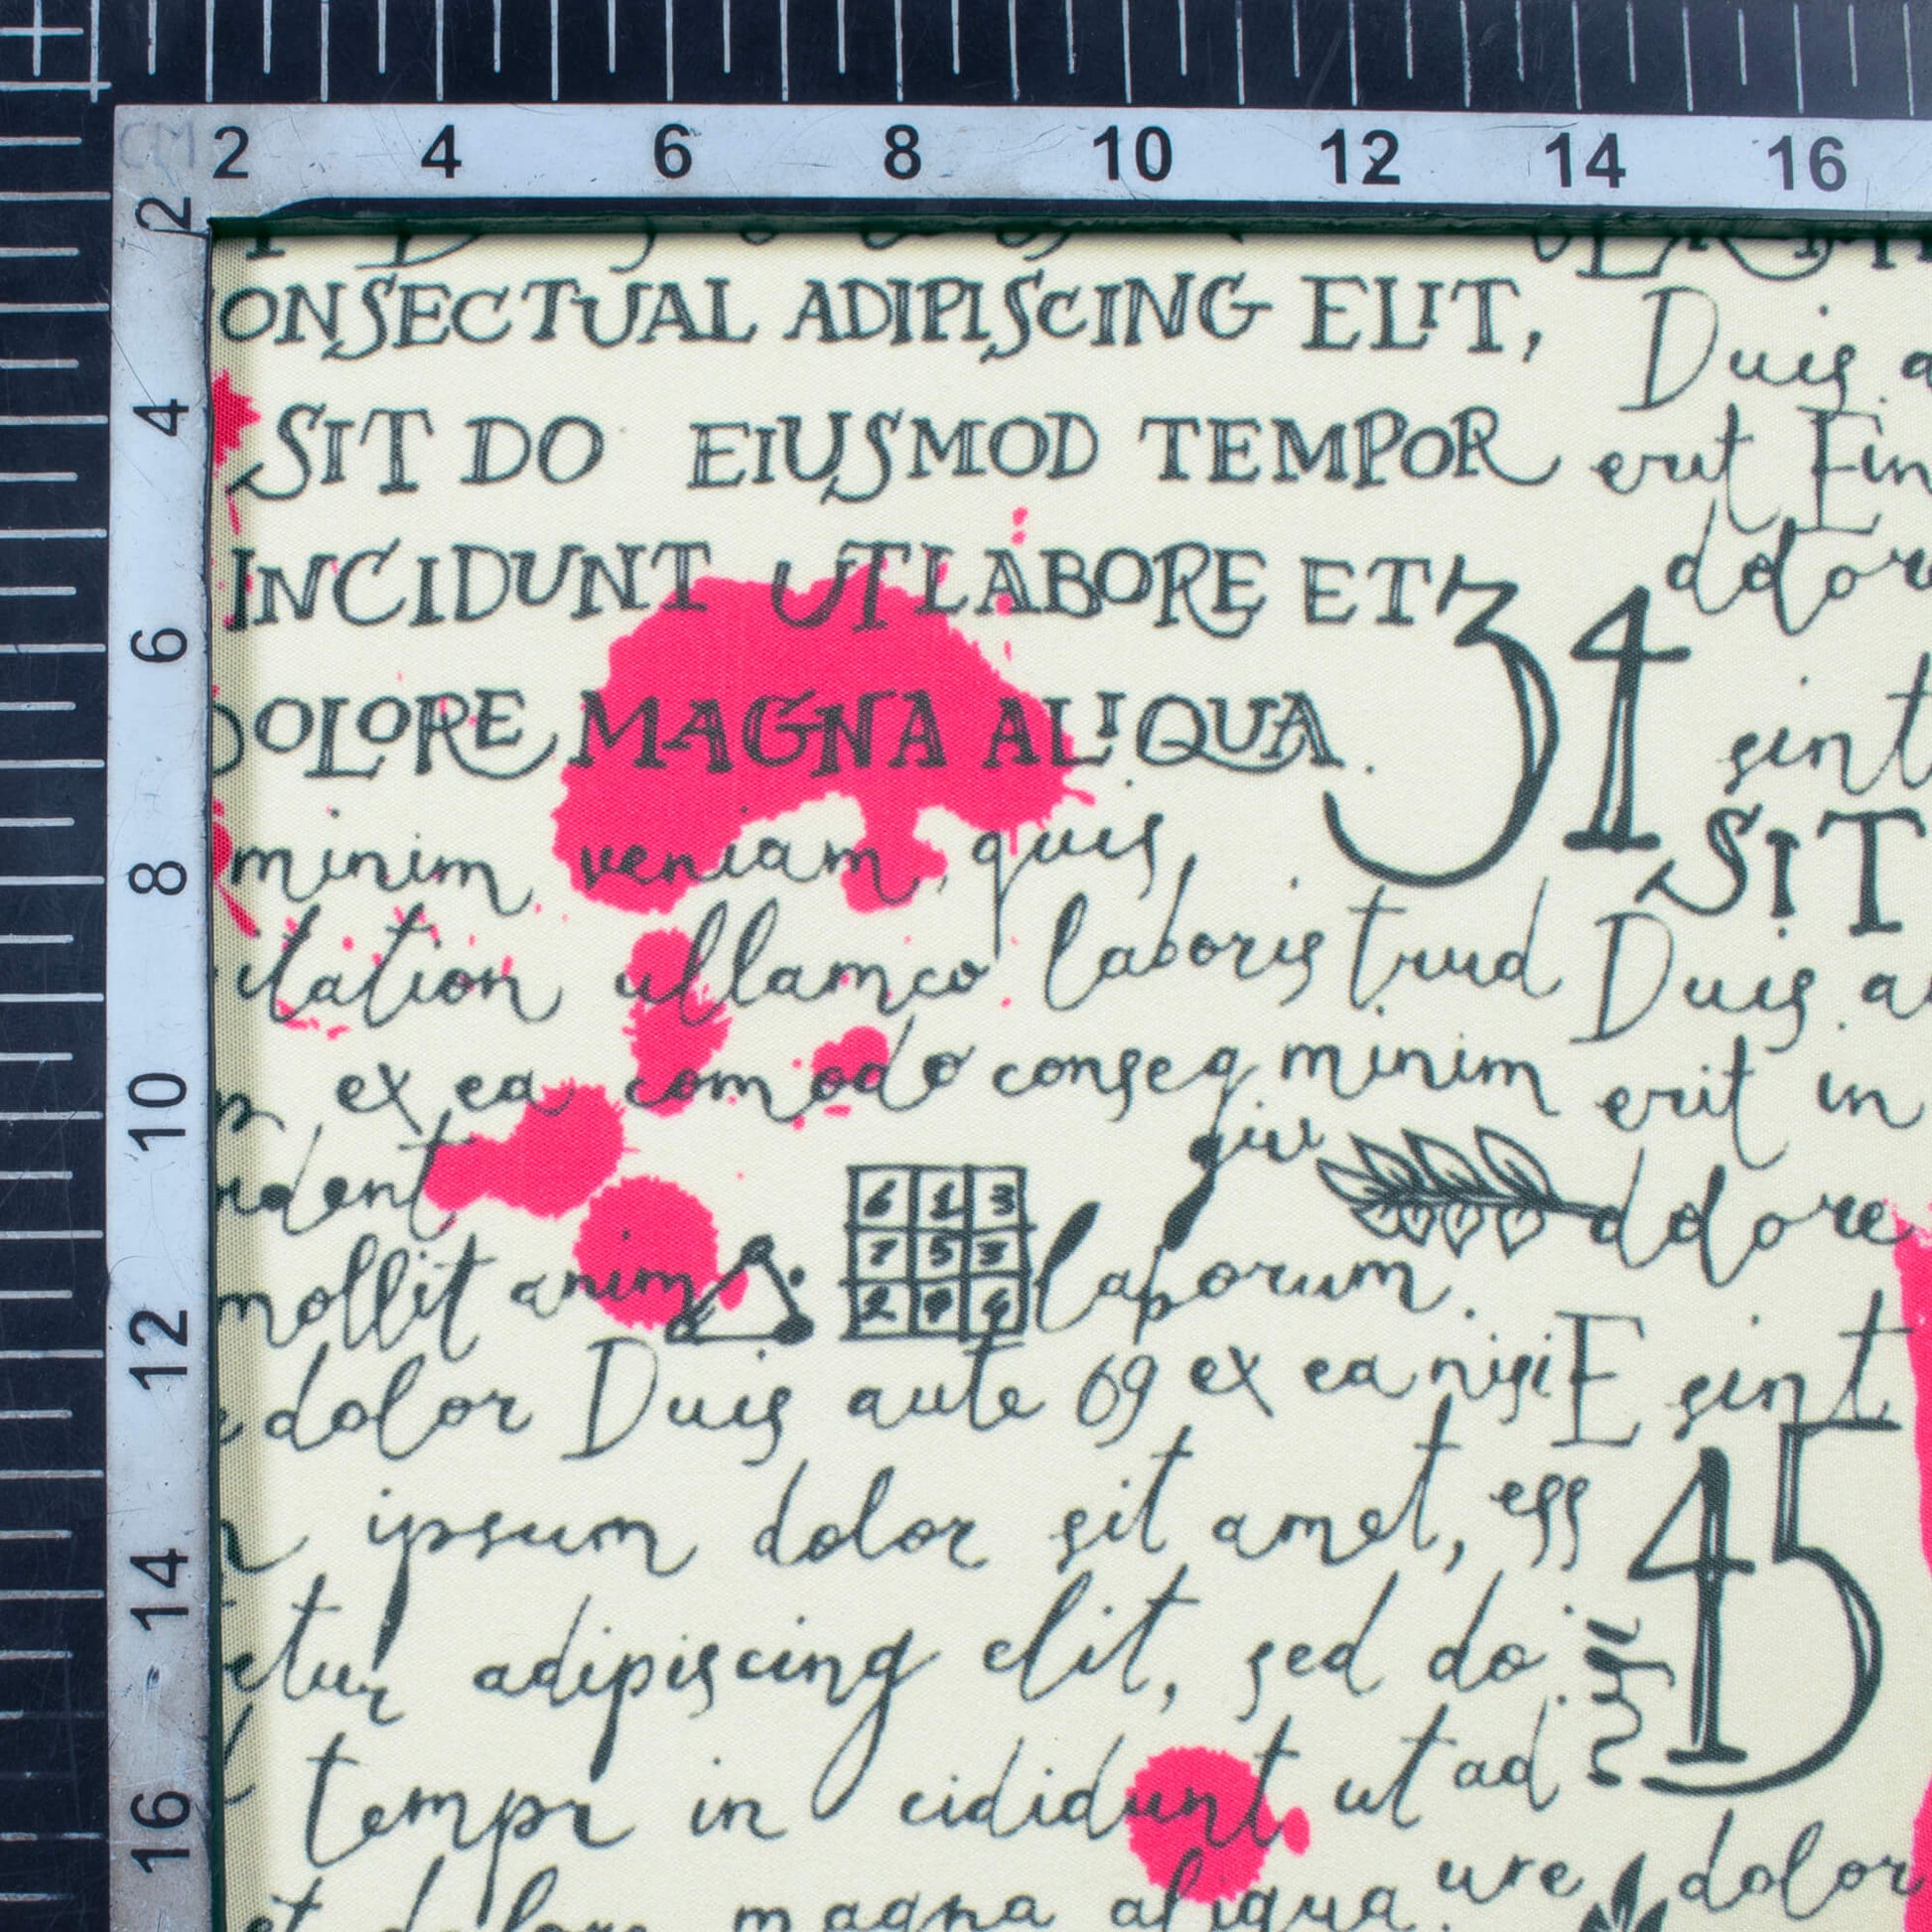 CM 2 4 6 8 10 12 14 16
2 4 6 8 10 12 14 16
ONSECTUAL ADIPISCING ELIT,
SIT DO EIUSMOD TEMPOR
INCIDUNT UT LABORE ET
OLORE MAGNA ALIQUA.
34
minim veniam, quis,
itation ullamco laboris trud
ex ea comodo conseq minim
ident,
mollit anim laborum.
6 1 3
7 5 3
dolor Duis aute 69 ex ea nisi E sint
ipsum dolor sit amet, ess
45
etur adipiscing elit, sed do
tempr in cididunt ut ad
ure dolor
et dolore magna aliqua.
Duis a
erut Ein
ddolor
sint
SIT
Duis a
erit in
ddolore